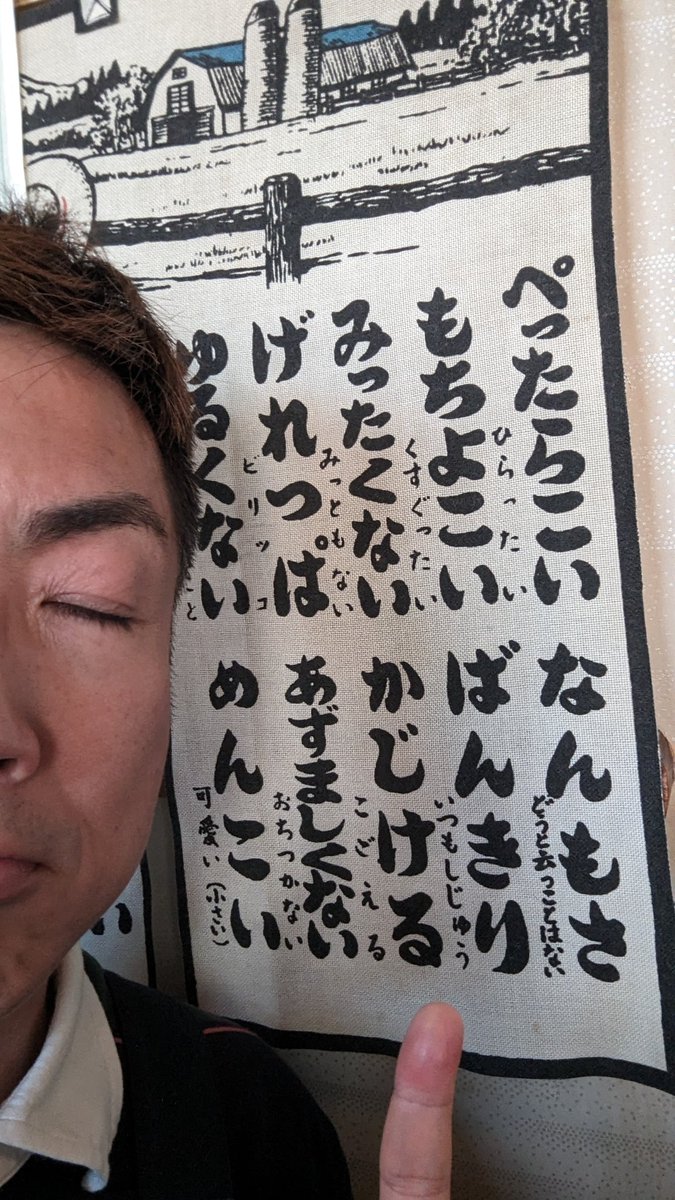 ぺったらこい
ひらったい
もちよこい
くすぐったい
みったくない
みっともない
げれっぱ
ビリッコ
ゆるくない
と
なんもさ
どうと云うことはない
ばんきり
いつもしじゅう
かじける
こごえる
あずましくない
おちつかない
めんこい
可愛い（小さい）
い